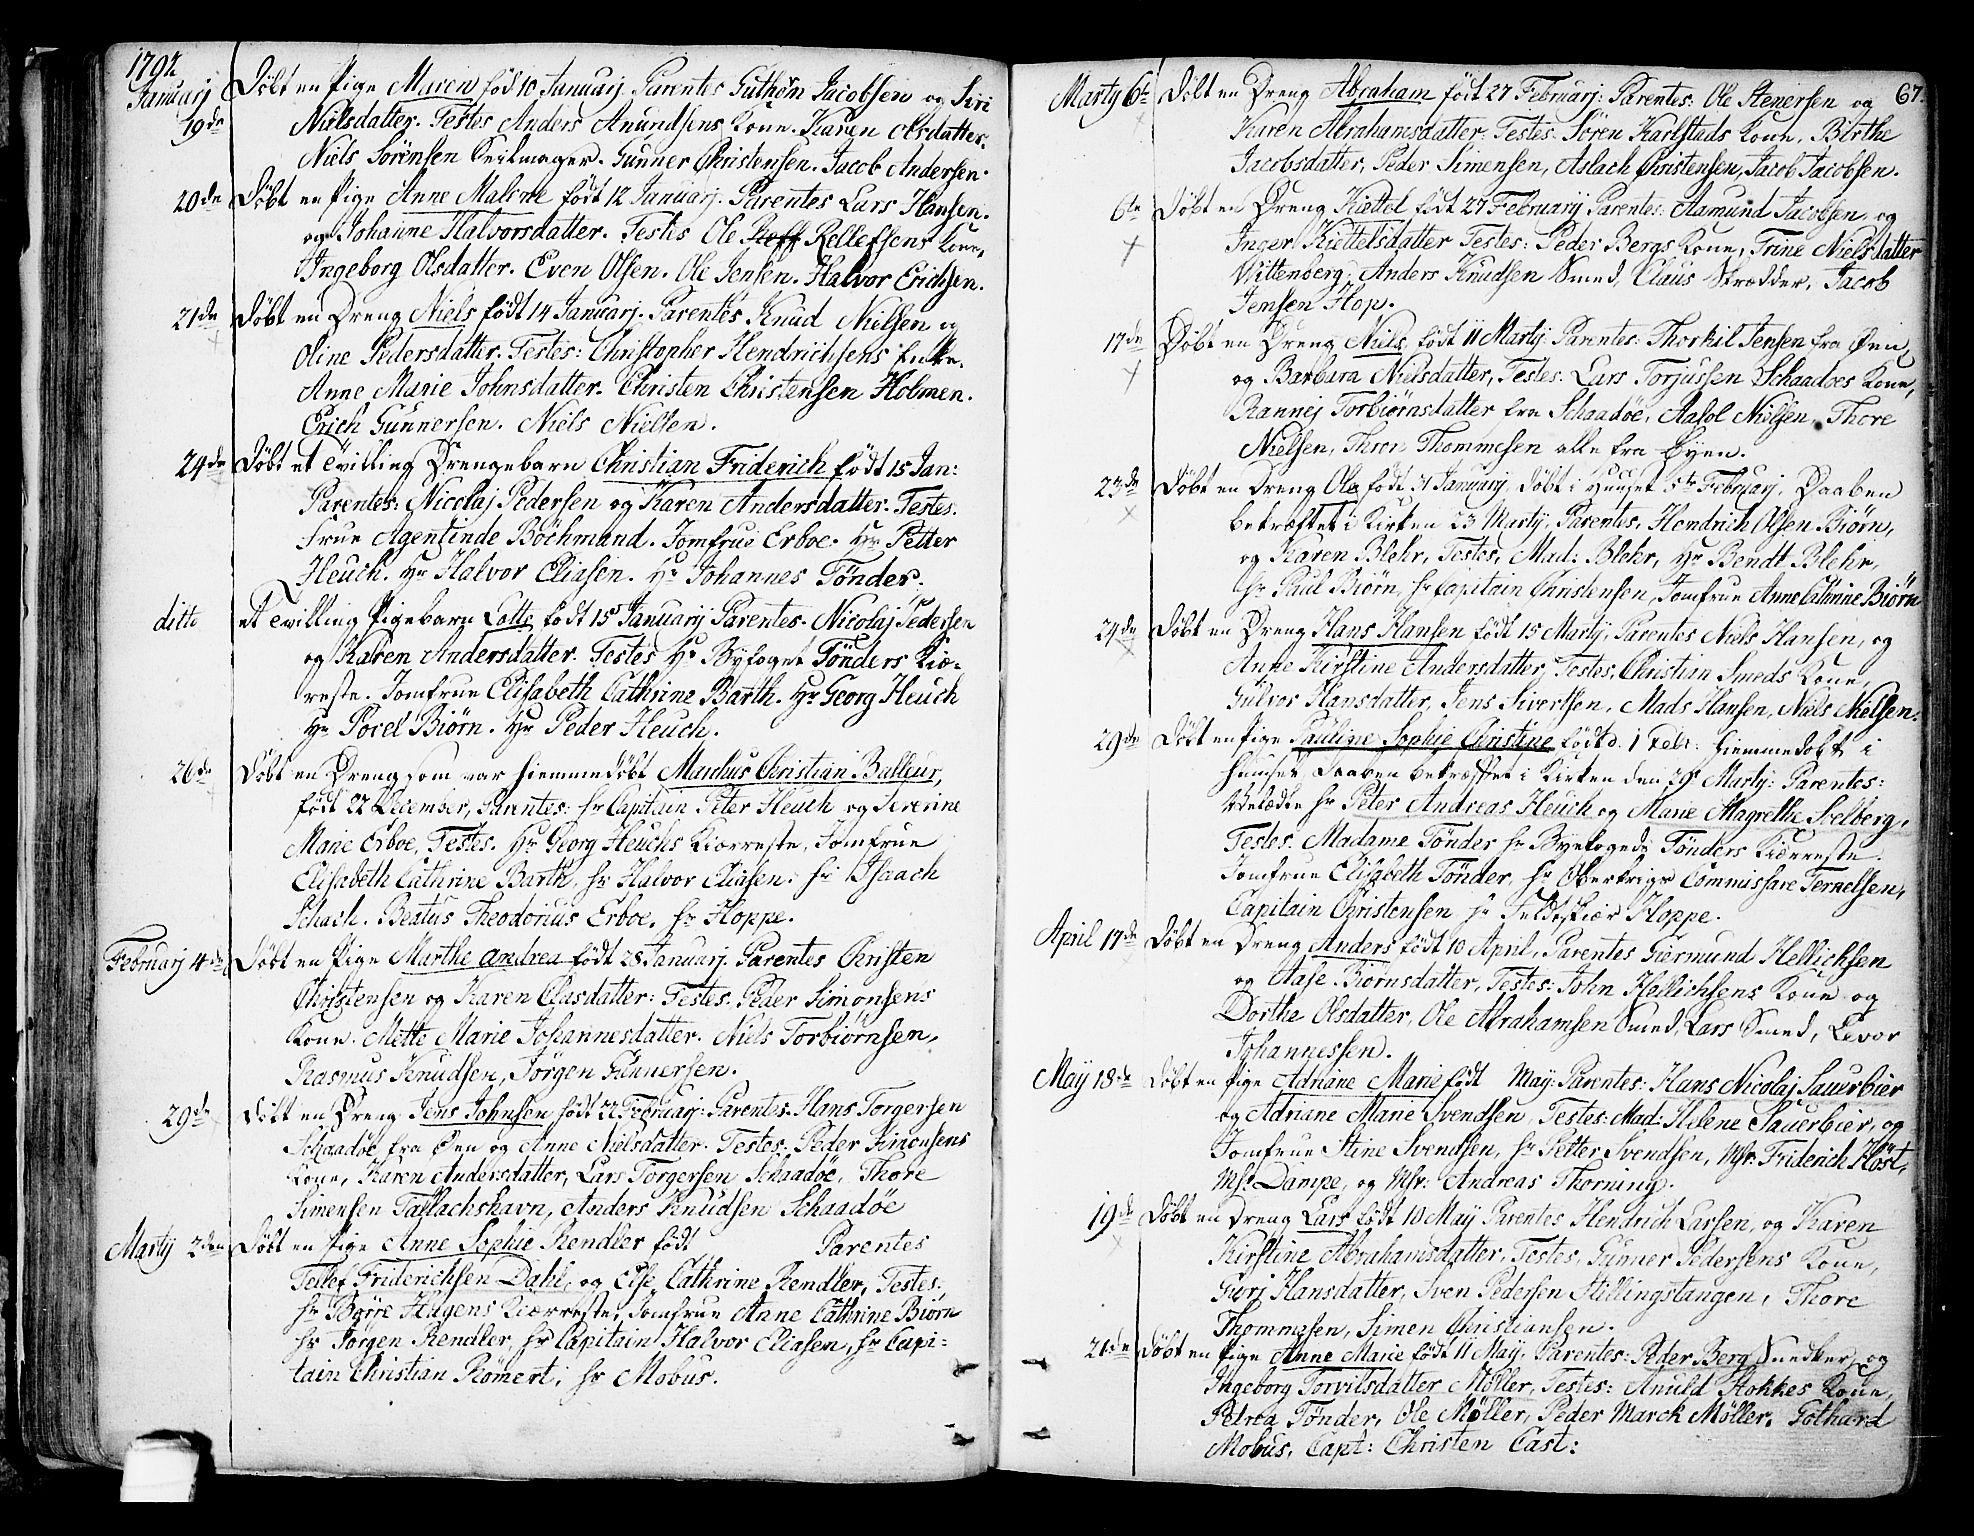 1792
Januarj Döbt en Pige Maren föd 10 Januarj Parentes Guthôm Jacobsen og Siri
19de Nielsdatter. Testes Anders Anundsens Kone. Karen Olsdatter.
Niels Sörensen Seilmager. Gunner Christensen. Jacob Andersen.
20de Döbt en Pige Anne Malene födt 12 Januarj. Parentes Lars Hansen.
og Johanne Halvorsdatter. Testes Ole Rellefsens Kone,
Ingeborg Olsdatter. Even Olsen. Ole Jensen. Halvor Erichsen.
21de Döbt en Dreng Niels födt 14 Januarj. Parentes Knud Nielsen og
Oline Pedersdatter. Testes: Christopher Hendrichsens Enke.
Anne Marie Johnsdatter. Christen Christensen Holmen.
Erich Gunnersen. Niels Nielsen.
24de Döbt et Tvilling Drengebarn Christian Friderich födt 15 Jan:
Parentes: Nicolaj Pedersen og Karen Andersdatter. Testes.
Frue Agentinde Böchmand. Jomfrue Erboe. Hr Petter
Heuch. Hr Halvor Eliasen. Hr Johannes Tönder.
ditto et Tvilling Pigebarn Lotte födt 15 Januarij Parentes. Nicolaj Pedersen
og Karen Andersdatter. Testes Hr Byfoget Tönders Kiæ-
reste. Jomfrue Elisabeth Cathrine Barth. Hr Georg Heuch
Hr Povel Biørn. Hr Peder Heuch.
26de Döbt en Dreng som var hiemmedöbt Marchus Christian Balleur,
födt 22 December, Parentes: Hr Capitain Peter Heuch og Severine
Marie Erboe, Testes. Hr Georg Heuchs Kiærreste, Jomfrue
Elisabeth Cathrine Barth, Hr Halvor Eliasen. Hr Isaach
Schach. Beatus Theodorius Erboe. Hr Hoppe.
Februarj 4de Döbt en Pige Marthe Andrea födt 28 Januarj. Parentes Christen
Christensen og Karen Clasdatter: Testes. Peder Simonsens
Kone. Mette Marie Johannesdatter. Niels Torbiørnsen,
Rasmus Knudsen, Jörgen Gunnersen.
29de Döbt en Dreng Jens Johnsen födt 22 Februarj: Parentes. Hans Torgersen
Schaadöe fra Øen og Anne Nielsdatter. Testes. Peder Simonsens
Kone, Karen Andersdatter, Lars Torgersen Schaadöe, Thore
Simensen Tallachshavn, Anders Knudsen Schaadöe
Martij 2den Döbt en Pige Anne Sophie Rendler födt Parentes
Tellef Friderichsen Dahl, og Else Cathrine Rendler, Testes,
Hr Børje Hagens Kiærreste, Jomfrue Anne Cathrine Biørn
Hr Jörgen Rendler, Hr Capitain Halvor Eliasen, Hr Capi-
tain Christian Römert, Hr Mobus.
67.
Martij 6te Döbt en Dreng Abraham födt 27 Februarj: Parentes: Ole Stenersen og
Karen Abrahamsdatter, Testes. Sören Karlstads Kone, Birthe
Jacobsdatter, Peder Simensen, Aslach Christensen, Jacob Jacobsen.
6te Döbt en Dreng Kiettel födt 27 Februarij Parentes: Aamund Jacobsen, og
Inger Kiettelsdatter Testes: Peder Bergs Kone, Trine Nielsdatter
Wittenberg, Anders Knudsen Smed, Claus Skrædder, Jacob
Jensen Hop.
17de Döbt en Dreng Niels, födt 11 Martij. Parentes. Thorkil Jensen fra Øen,
og Barbara Nielsdatter, Testes: Lars Torjussen Schaadöes Kone,
Rannej Torbiørnsdatter fra Schaadöe, Aasol Nielsen, Thore
Nielsen, Thron Thommesen alle fra Øyen.
23de Döbt en Dreng Ole födt 31 Januarj, döbt i Huuset 5te Februarj, Daaben
bekræftet i Kirken 23 Martij, Parentes, Hendrich Olsen Biørn,
og Karen Blehr, Testes, Mad: Blehr, Hr Bendt Blehr,
Hr Paul Biørn, Hr Capitain Christensen, Jomfrue Anne Cathrine Biørn
24de Döbt en Dreng Hans Hansen födt 15 Martij, Parentes Niels Hansen, og
Anne Kirstine Andersdatter, Testes, Christian Smeds Kone,
Gulvor Hansdatter, Jens Sivertsen, Mads Hansen, Niels Nielsen.
29de Döbt en Pige Pauline Sophie Christine födt d. 1 Febr: hiemmedöbt i
Huuset, Daaben bekræftet i Kirken den 29 Martij: Parentes:
Hr Peter Andreas Heuch og Marie Magrethe Svelberg,
Testes. Madame Tönder Hr Byefogeds Tönders Kiærreste.
Jomfrue Elisabeth Tönder, Hr Oberkrigs Commissare Ternelsen,
Capitain Christensen Hr Feldtskiær Hoppe.
April 17de Döbt en Dreng Anders födt 10 April, Parentes Giermund Hellichsen
og Aase Biørnsdatter, Testes: John Hellichsens Kone og
Dorthe Olsdatter, Ole Abrahamsen Smed, Lars Smed, Levor
Johannessen.
May 18de Döbt en Pige Adriane Marie födt May: Parentes: Hans Nicolaj Sauerbier
og Adriane Marie Svendsen, Testes: Mad: Helene Sauerbier, og
Jomfrue Stine Svendsen, Hr Petter Svendsen, Msr. Friderich Höst,
Msr Dampe, og Msr: Andreas Thorning.
19de Döbt en Dreng Lars födt 10 May Parentes Hendrich Larsen, og Karen
Kirstine Abrahamsdatter, Testes, Gunner Pedersens Kone,
Gurj Hansdatter, Sven Pedersen Stillingstangen, Thore
Thommesen, Simen Christiansen.
21de Döbt en Pige Anne Marie födt 11 May: Parentes: Peder Berg Snedker, og
Ingeborg Torvilsdatter Möller, Testes: Anuld Stokkes Kone,
Petrea Tönder, Ole Möller, Peder Marck Möller, Gothard
Mobus, Capt: Christen Cast: